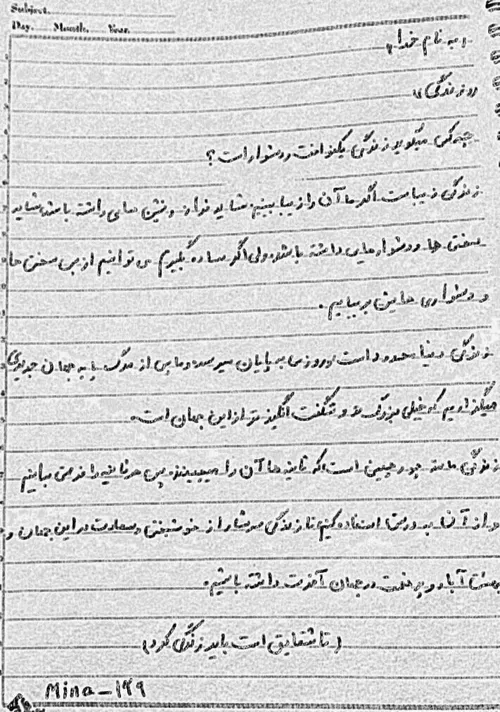 Subject.
Day. Month. Year.
«به نام خدا»
«زندگی»
چه کسی میگوید زندگی یکنواخت و دشوار است؟
زندگی زیباست اگر ما آن را زیبا ببینیم شاید فراز و نشیب هایی داشته باشد شاید
سختی ها و دشواری هایی داشته باشد ولی اگر ساده بگیریم می توانیم از پس سختی ها
و دشواری هایش بربیاییم.
زندگی دنیا محدود است و روزی به پایان میرسد و ما پس از مرگ پا به جهان جدیدی
میگذاریم که خیلی بزرگ تر و شگفت انگیز تر از این جهان است.
زندگی مانند است که ثانیه ها آن را میچینند پس هر ثانیه را
از آن به درستی استفاده کنیم تا زندگی سرشار از خوشبختی و سعادت در این جهان و
بهشتی آباد و پر نعمت در جهان آخرت داشته باشیم.
(تا شقایق است باید زندگی کرد)
Mina_149